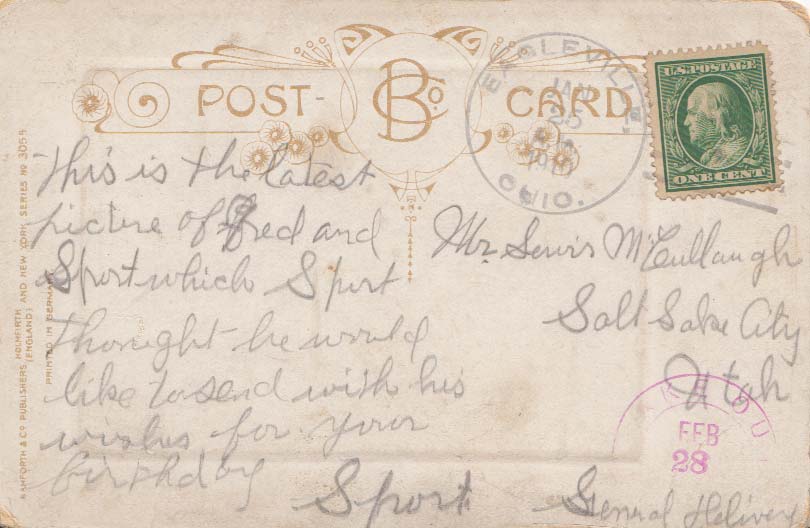 POST- B Co CARD
EAGLEVILLE
JAN
25
OHIO.
U.S. POSTAGE
ONE CENT
This is the latest
picture of Fred and
Sport which Sport
thought he would
like to send with his
wishes for your
birthday
Sport
Mr. Lewis McCullaugh
Salt Lake City
Utah
General Delivery
FEB
28
BAMFORTH & Co PUBLISHERS, HOLMFIRTH AND NEW YORK, SERIES No 3054
(ENGLAND)
PRINTED IN GERMANY